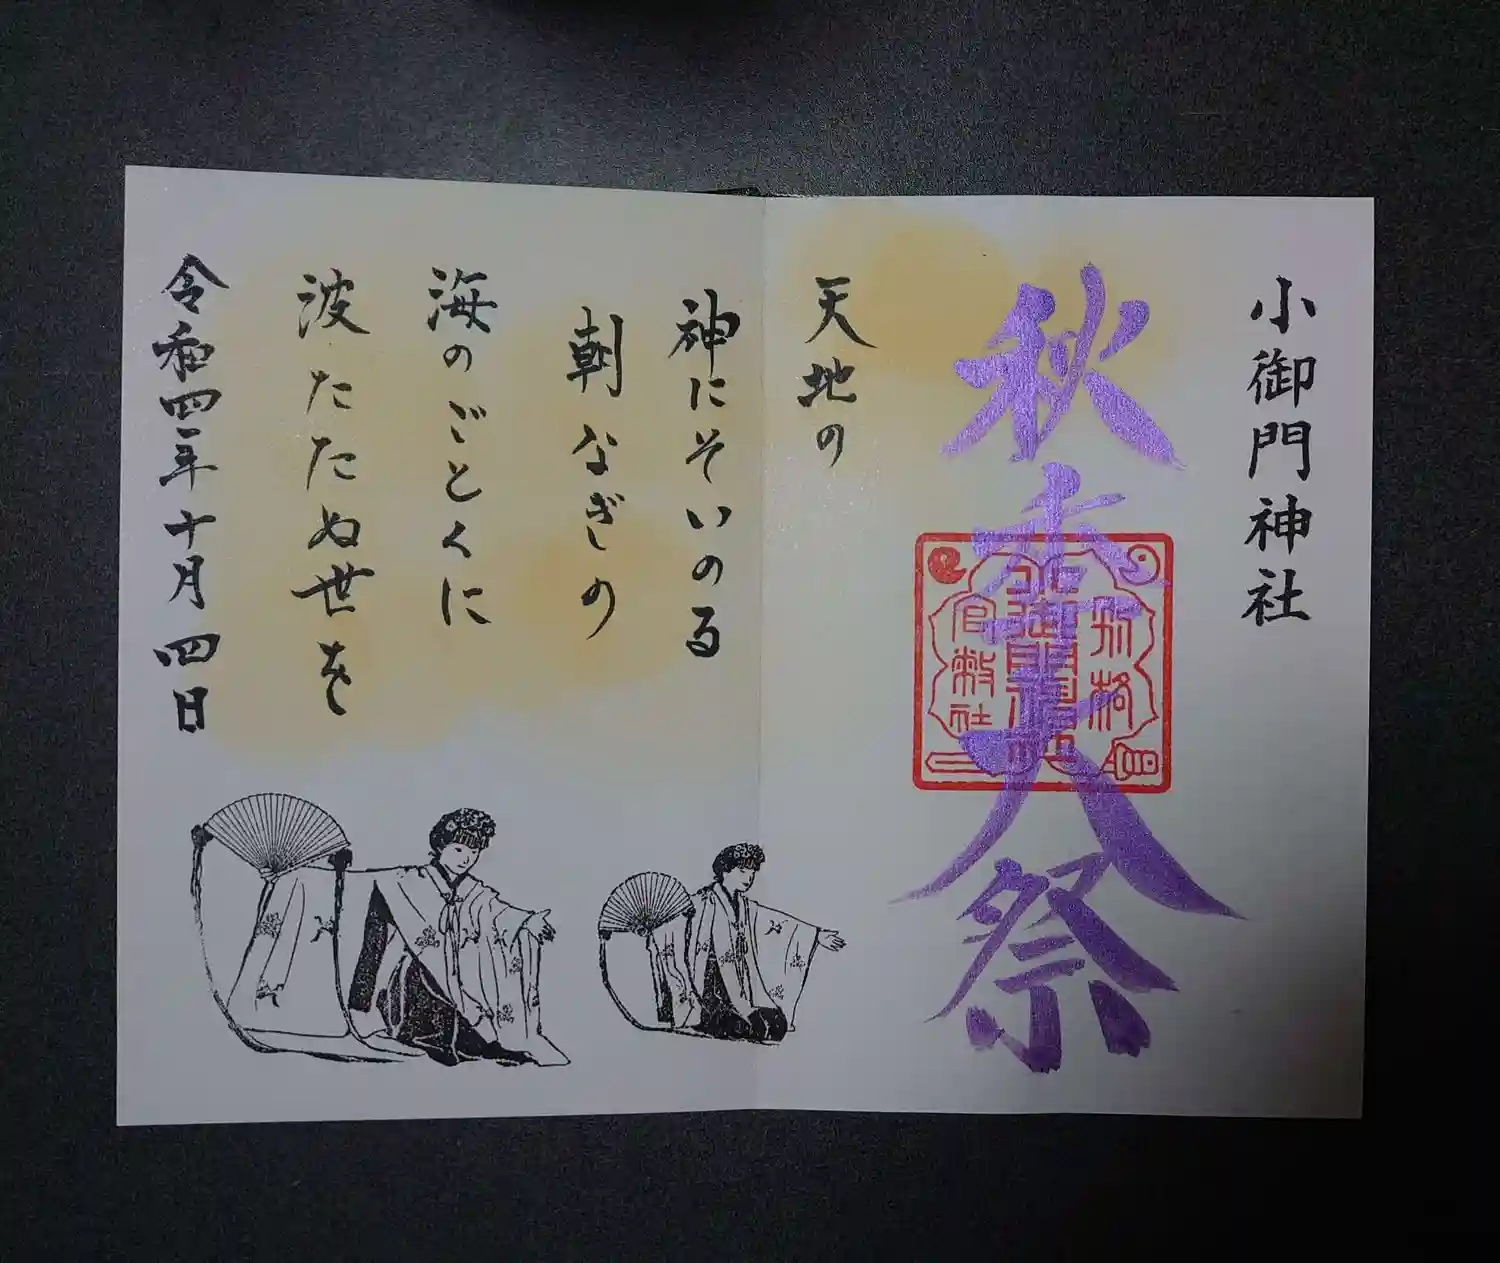 小御門神社
秋季大祭
別格
小御門神社
官幣社
天地の
神にそいのる
朝なぎの
海のごとくに
波たたぬ世を
令和四年十月四日